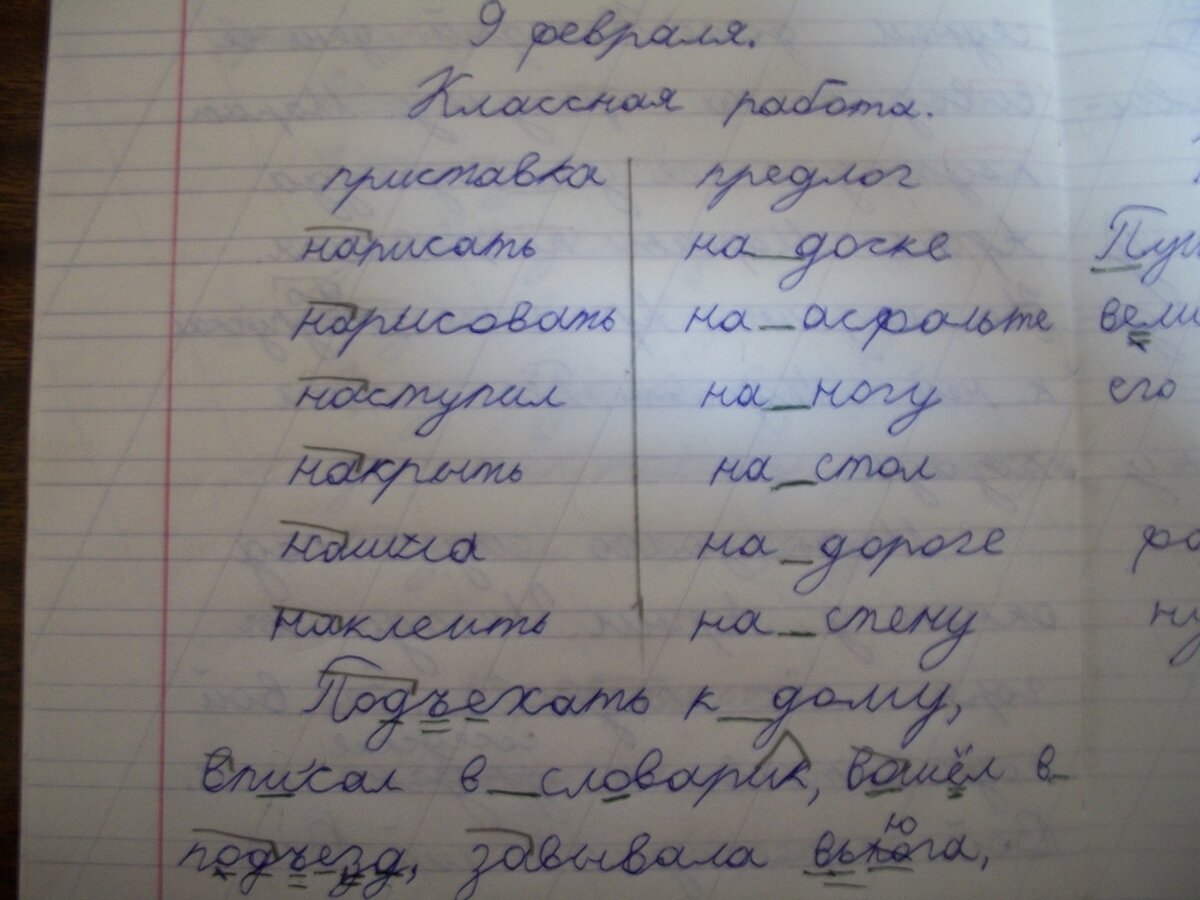 9 февраля.
Классная работа.
приставка предлог
написать на_доске
нарисовать на_асфальте
наступил на_ногу его
накрыть на_стол
нашла на_дороге
наклеить на_стену
Подъехать к_дому,
вписал в_словарик, вошёл в_
подъезд, завывала вьюга,